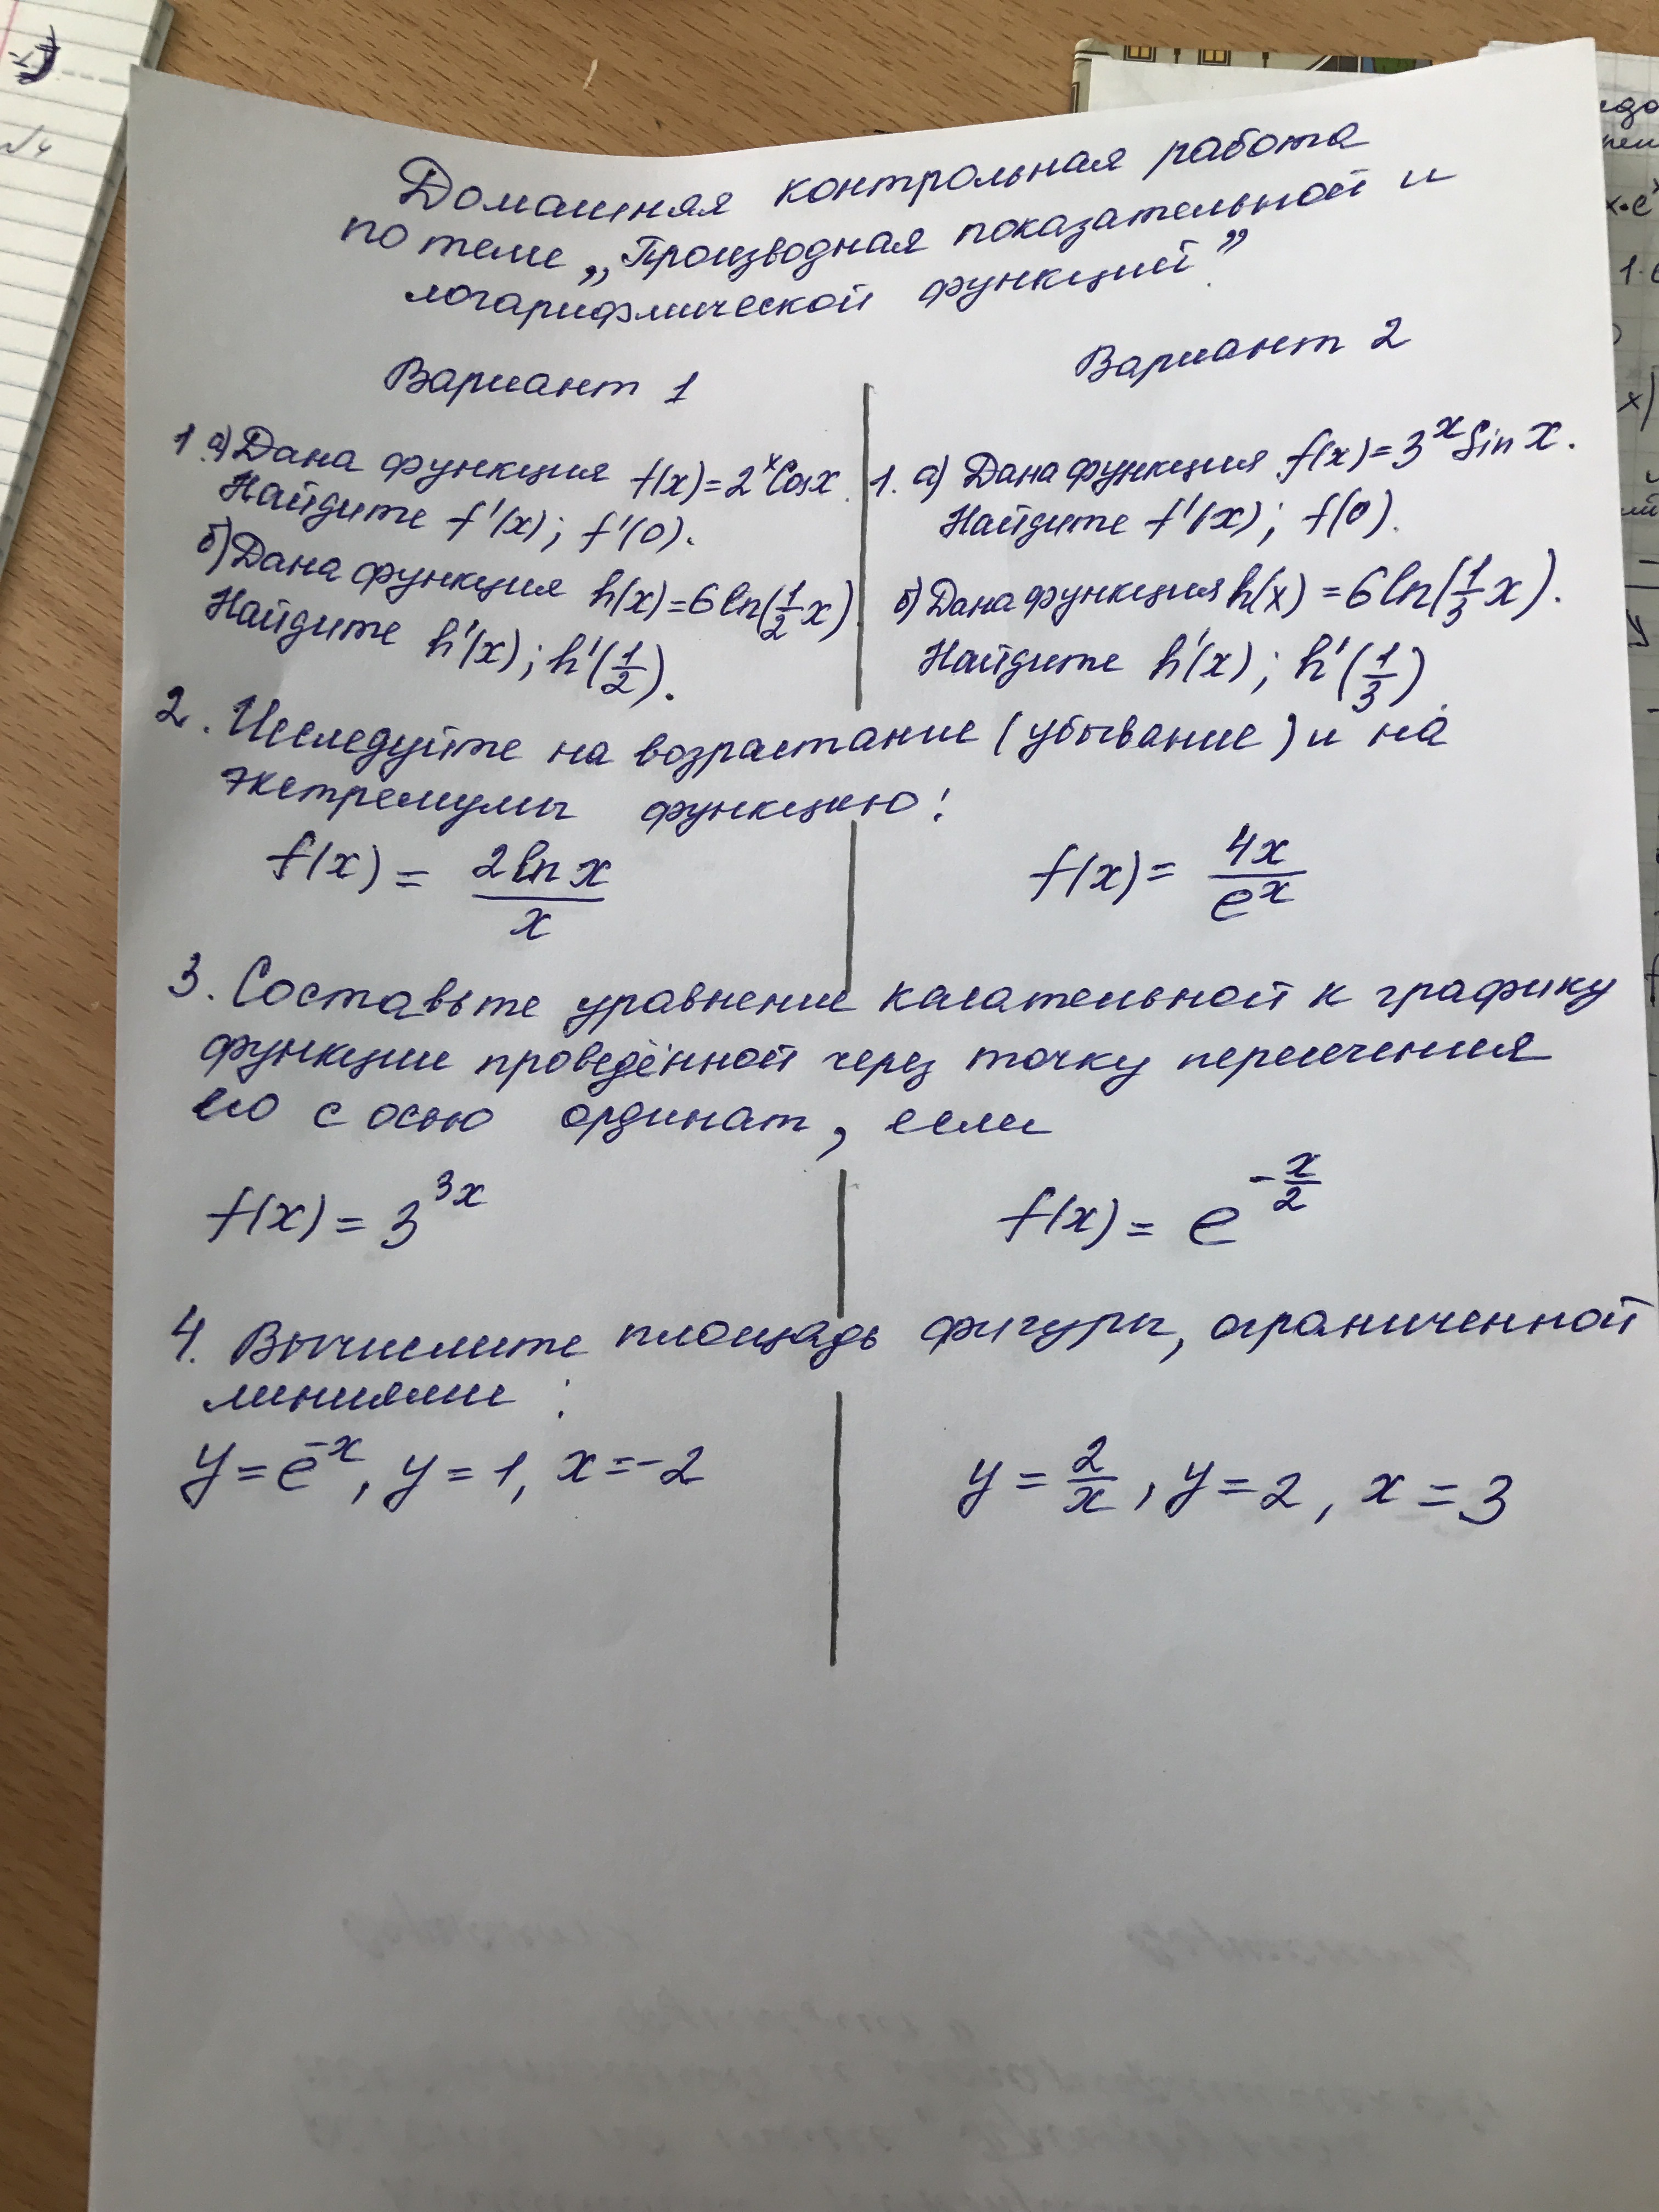 Домашняя контрольная работа
по теме „Производная показательной и
логарифмической функций”.
Вариант 1
1.а) Дана функция f(x)=2ˣCosx.
Найдите f'(x); f'(0).
б) Дана функция h(x)=6ln(1/2 x).
Найдите h'(x); h'(1/2).
Вариант 2
1. а) Дана функция f(x)=3ˣSin x.
Найдите f'(x); f(0).
б) Дана функция h(x)=6ln(1/3 x).
Найдите h'(x); h'(1/3).
2. Исследуйте на возрастание (убывание) и на
экстремумы функцию:
f(x) = 2ln x/x
f(x) = 4x/eˣ
3. Составьте уравнение касательной к графику
функции проведённой через точку пересечения
его с осью ординат, если
f(x) = 3^3x
f(x) = e^-x/2
4. Вычислите площадь фигуры, ограниченной
линиями :
y=e⁻ˣ, y=1, x=-2
y = 2/x, y=2, x=3